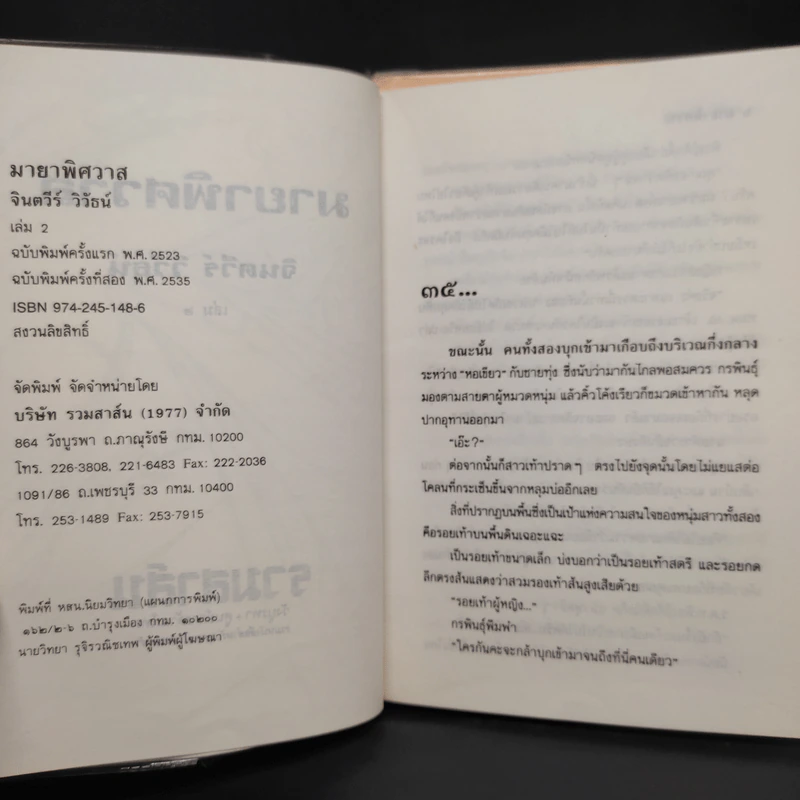 มายาพิศวาส
จินตวีร์ วิวัธน์
เล่ม 2
ฉบับพิมพ์ครั้งแรก พ.ศ. 2523
ฉบับพิมพ์ครั้งที่สอง พ.ศ. 2535
ISBN 974-245-148-6
สงวนลิขสิทธิ์
จัดพิมพ์ จัดจำหน่ายโดย
บริษัท รวมสาส์น (1977) จำกัด
864 วังบูรพา ถ.ภาณุรังษี กทม. 10200
โทร. 226-3808, 221-6483 Fax: 222-2036
1091/86 ถ.เพชรบุรี 33 กทม. 10400
โทร. 253-1489 Fax: 253-7915
พิมพ์ที่ หสน.นิยมวิทยา (แผนกการพิมพ์)
๑๖๒/๒-๖ ถ.บำรุงเมือง กทม. ๑๐๒๐๐
นายวิทยา รุจิรวณิชเทพ ผู้พิมพ์ผู้โฆษณา
๓๕...
ขณะนั้น คนทั้งสองบุกเข้ามาเกือบถึงบริเวณกึ่งกลาง
ระหว่าง "หอเขียว" กับชายทุ่ง ซึ่งนับว่ามากันไกลพอสมควร กรพินธุ์
มองตามสายตาผู้หมวดหนุ่ม แล้วคิ้วโค้งเรียวก็ขมวดเข้าหากัน หลุด
ปากอุทานออกมา
"เอ๊ะ?"
ต่อจากนั้นก็สาวเท้าปราดๆ ตรงไปยังจุดนั้นโดยไม่แยแสต่อ
โคลนที่กระเซ็นขึ้นจากหลุมบ่ออีกเลย
สิ่งที่ปรากฏบนพื้นซึ่งเป็นเป้าแห่งความสนใจของหนุ่มสาวทั้งสอง
คือรอยเท้าบนพื้นดินเฉอะแฉะ
เป็นรอยเท้าขนาดเล็ก บ่งบอกว่าเป็นรอยเท้าสตรี และรอยกด
ลึกตรงส้นแสดงว่าสวมรองเท้าส้นสูงเสียด้วย
"รอยเท้าผู้หญิง..."
กรพินธุ์พึมพำ
"ใครกันคะจะกล้าบุกเข้ามาจนถึงที่นี่คนเดียว"